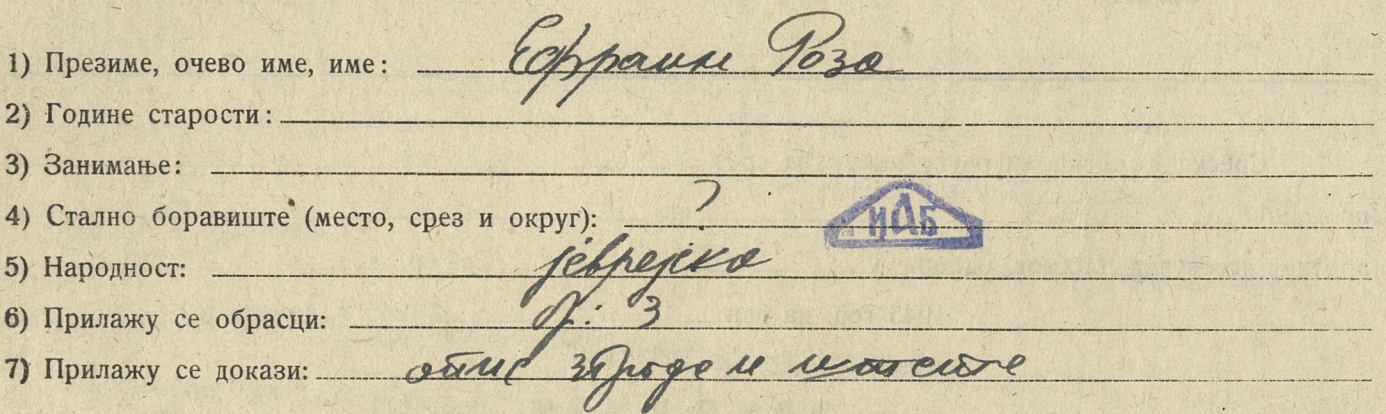 1) Презиме, очево име, име: Ефраин Роза
2) Године старости:
3) Занимање:
4) Стално боравиште (место, срез и округ): ?
ИАБ
5) Народност: јеврејска
6) Прилажу се обрасци: 3
7) Прилажу се докази: опис зграде и